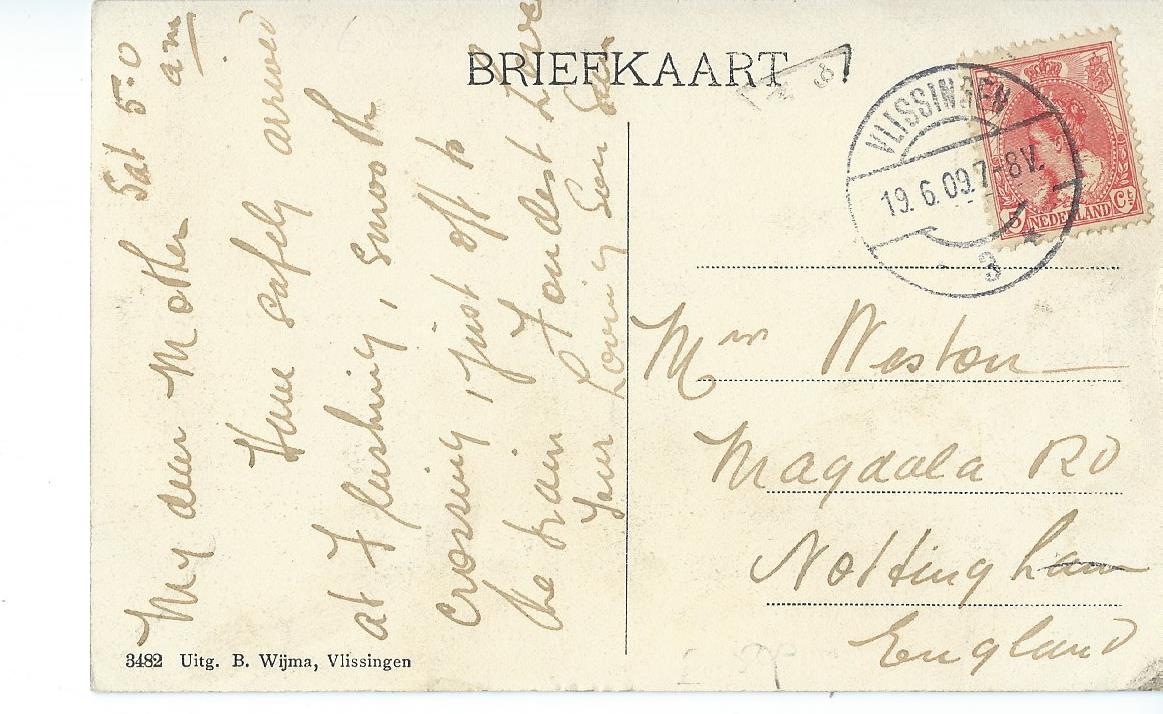 BRIEFKAART
VLISSINGEN
19.6.09.7-8V.
3
5 NEDERLAND Ct
Sat 5.0
am
My dear Mother
Have safely arrived
at Flushing, smooth
crossing, just off to
the train Fondest Love
Your Loving Son
Mrs Weston
Magdala RD
Nottingham
England
3482 Uitg. B. Wijma, Vlissingen